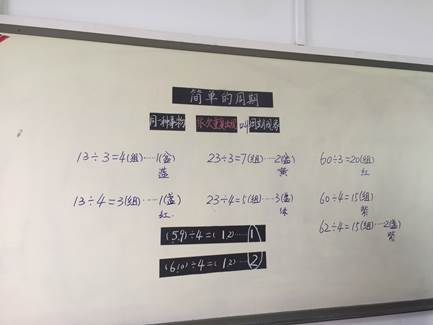 简单的周期
同一种事物 依次重复出现 叫周期现象
13÷3=4(组)…1(盆)
蓝
23÷3=7(组)…2(盆)
黄
60÷3=20(组)
红
13÷4=3(组)…1(盆)
红
23÷4=5(组)…3(盆)
60÷4=15(组)
紫
62÷4=15(组)…2(盆)
(59)÷4=(12)……1
(610)÷4=(12)……2